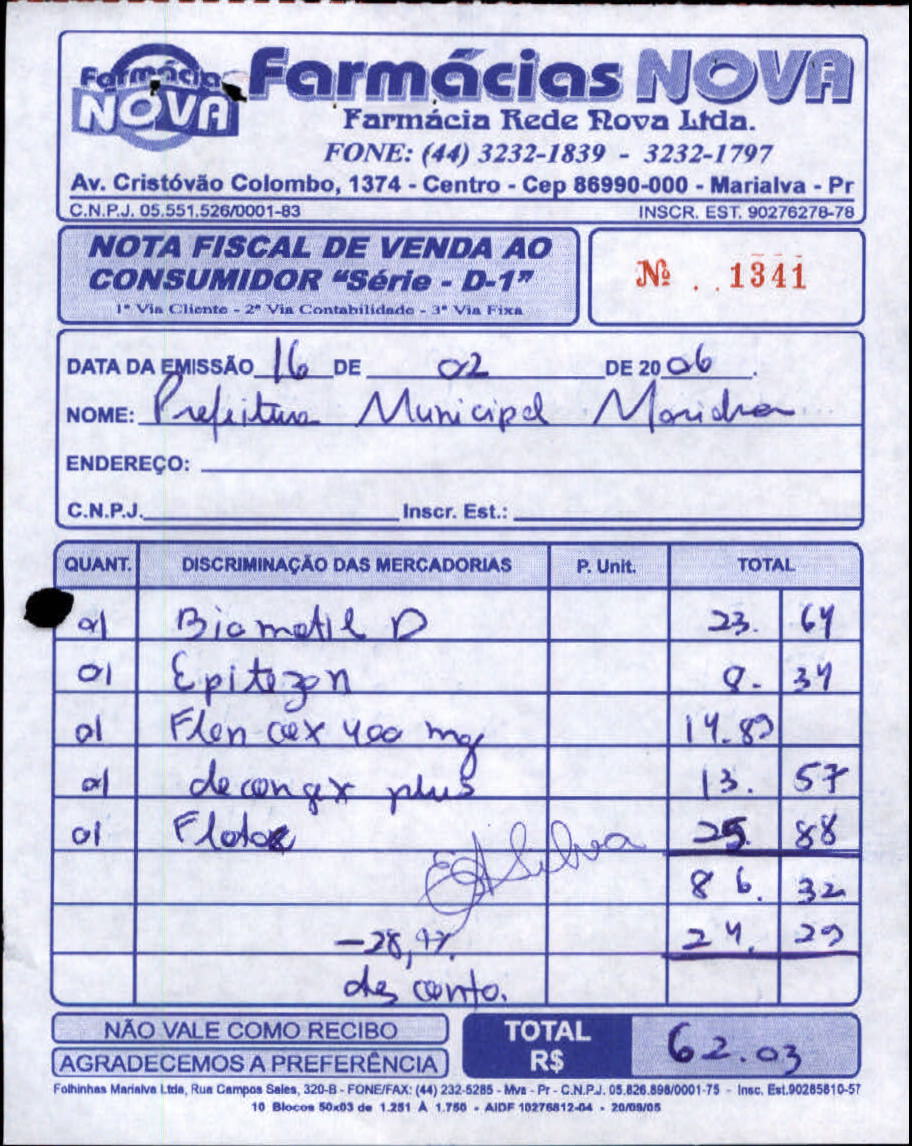 Farmácia NOVA
Farmácias NOVA
Farmácia Rede Nova Ltda.
FONE: (44) 3232-1839 - 3232-1797
Av. Cristóvão Colombo, 1374 - Centro - Cep 86990-000 - Marialva - Pr
C.N.P.J. 05.551.526/0001-83 INSCR. EST. 90276278-78
NOTA FISCAL DE VENDA AO
CONSUMIDOR "Série - D-1"
1ª Via Cliente - 2ª Via Contabilidade - 3ª Via Fixa
Nº 1341
DATA DA EMISSÃO 16 DE 02 DE 2006
NOME: Prefeitura Municipal Marialva
ENDEREÇO:
C.N.P.J. Inscr. Est.:
QUANT. DISCRIMINAÇÃO DAS MERCADORIAS P. Unit. TOTAL
01 Biometil D 23. 64
01 Epitezon 8. 34
01 Flancox 400 mg 14.89
01 decongex plus 13. 57
01 Flotac 25. 88
EASilva
86. 32
24. 29
desconto.
NÃO VALE COMO RECIBO
AGRADECEMOS A PREFERÊNCIA
TOTAL R$ 62.03
Folhinhas Marialva Ltda, Rua Campos Sales, 320-B - FONE/FAX: (44) 232-5285 - Mva - Pr - C.N.P.J. 05.826.898/0001-75 - Insc. Est.90285810-57
10 Blocos 50x03 de 1.251 À 1.750 - AIDF 10276812-04 - 20/09/05